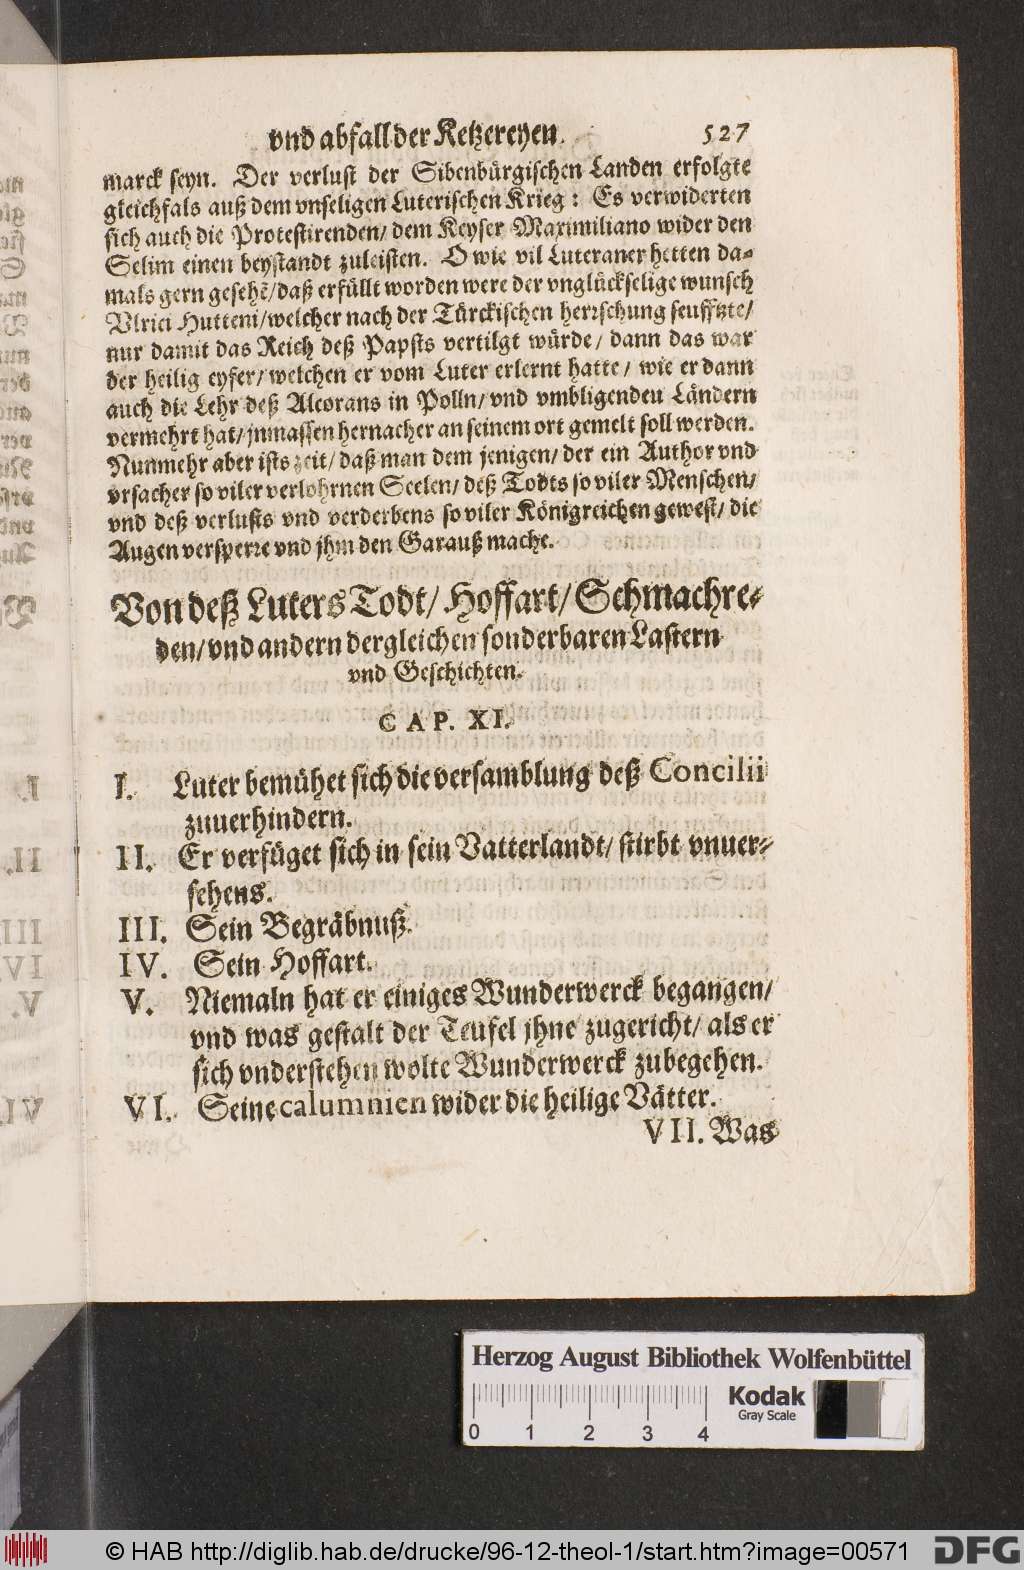 vnd abfall der Ketzereyen. 527
marck seyn. Der verlust der Sibenbürgischen Landen erfolgte
gleichfals auß dem vnseligen Luterischen Krieg: Es verwiderten
sich auch die Protestirenden/ dem Keyser Maximiliano wider den
Selim einen beystandt zuleisten. O wie vil Luteraner hetten da-
mals gern gesehẽ/ daß erfüllt worden were der vnglückselige wunsch
Vlrici Hutteni/ welcher nach der Türckischen herrschung seufftzte/
nur damit das Reich deß Papsts vertilgt würde/ dann das war
der heilig eyfer/ welchen er vom Luter erlernt hatte/ wie er dann
auch die Lehr deß Alcorans in Polln/ vnd vmbligenden Ländern
vermehrt hat/ jnmassen hernacher an seinem ort gemelt soll werden.
Nunmehr aber ists zeit/ daß man dem jenigen/ der ein Author vnd
vrsacher so viler verlohrnen Seelen/ deß Todts so viler Menschen/
vnd deß verlusts vnd verderbens so viler Königreichen gewest/ die
Augen versperre vnd jhm den Garauß mache.
Von deß Luters Todt/ Hoffart/ Schmachre-
den/ vnd andern dergleichen sonderbaren Lastern
vnd Geschichten.
CAP. XI.
I. Luter bemühet sich die versamblung deß Concilii
zuuerhindern.
II. Er verfüget sich in sein Vatterlandt/ stirbt vnuer-
sehens.
III. Sein Begräbnuß.
IV. Sein Hoffart.
V. Niemaln hat er einiges Wunderwerck begangen/
vnd was gestalt der Teufel jhne zugericht/ als er
sich vnderstehen wolte Wunderwerck zubegehen.
VI. Seine calumnien wider die heilige Vätter.
VII. Was
Herzog August Bibliothek Wolfenbüttel
Kodak
Gray Scale
0 1 2 3 4
© HAB http://diglib.hab.de/drucke/96-12-theol-1/start.htm?image=00571
DFG